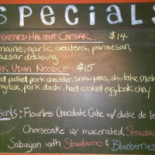 SPECIALS
SMOKED HALIBUT CAESAR $14
romaine, garlic croutons, parmesan,
caesar dressing
PORK UDON NOODLE $15
pulled pork shoulder, snow peas, shiitake
pork dashi, hard cooked egg, bok choy
Flourless Chocolate Cake w/ dulce de
Cheesecake w/ macerated Strawberries
Sabayon with Strawberries & Blueberries